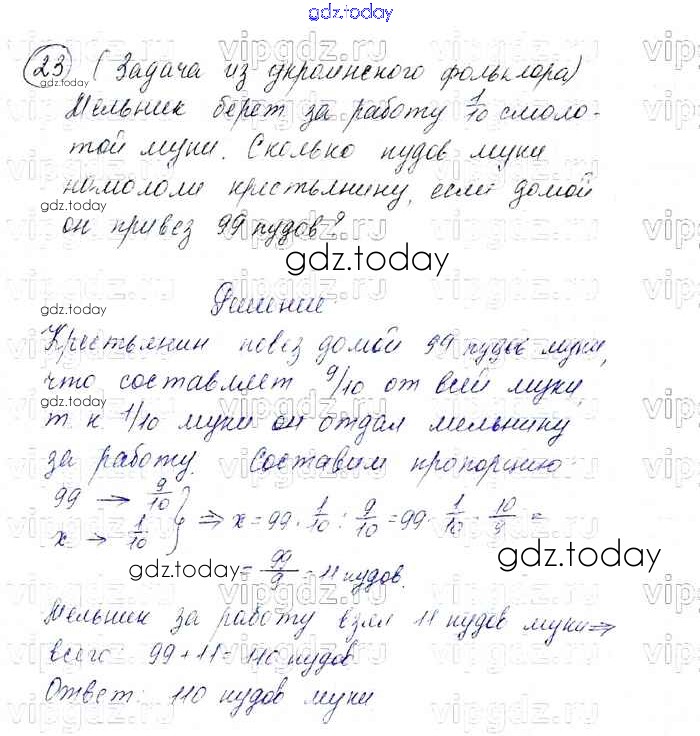 gdz.today
23 (Задача из украинского фольклора)
Мельник берет за работу 1/10 смоло-
той муки. Сколько пудов муки
намололи крестьянину, если домой
он привез 99 пудов?
gdz.today
Решение
Крестьянин повез домой 99 пудов муки,
что составляет 9/10 от всей муки,
т к 1/10 муки он отдал мельнику
за работу. Составим пропорцию:
99 → 9/10
x → 1/10 } ⇒ x = 99 · 1/10 : 9/10 = 99 · 1/10 · 10/9 =
= 99/9 = 11 пудов.
Мельник за работу взял 11 пудов муки ⇒
всего: 99 + 11 = 110 пудов
Ответ: 110 пудов муки